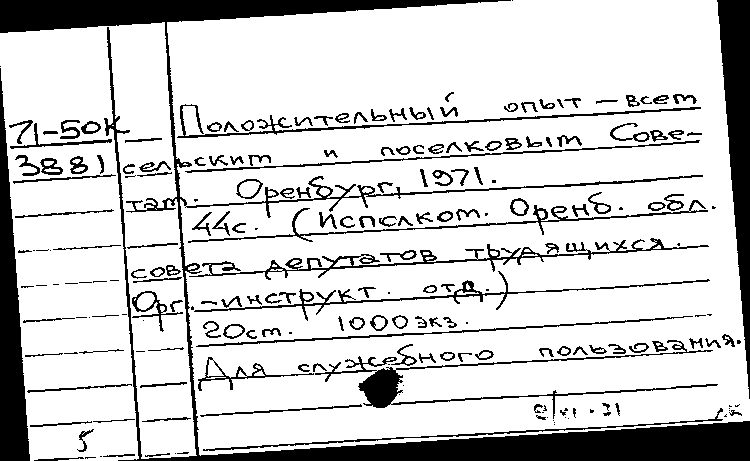 71-50К Положительный опыт – всем
3881 сельским и поселковым Сове-
там. Оренбург, 1971.
44с. (Исполком. Оренб. обл.
совета депутатов трудящихся.
Орг.-инструкт. отд.)
20см. 1000 экз.
Для служебного пользования.
5